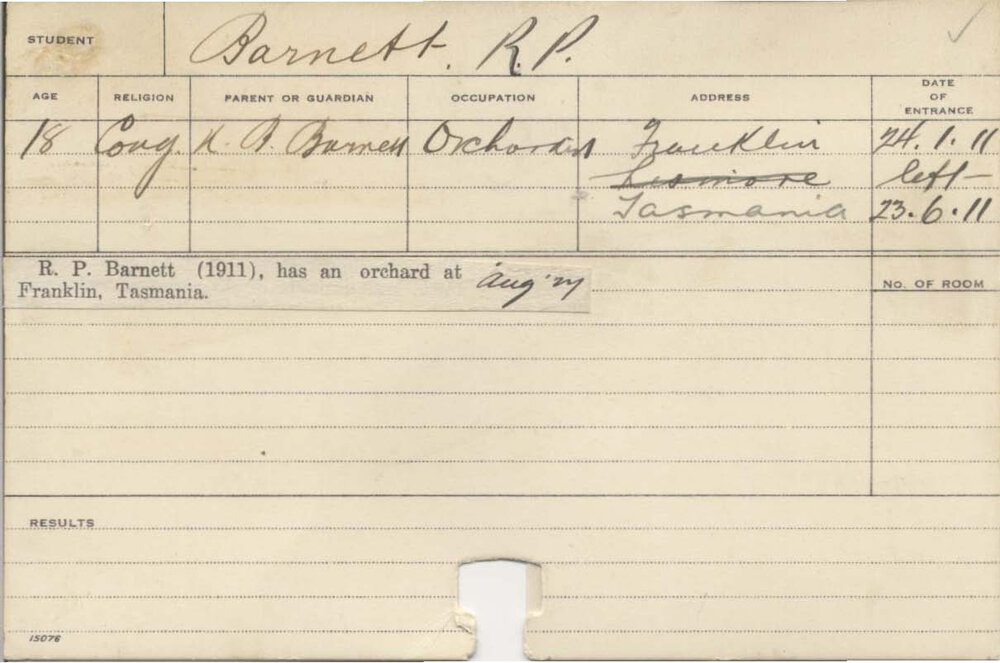 STUDENT Barnett. R.P.
AGE RELIGION PARENT OR GUARDIAN OCCUPATION ADDRESS DATE OF ENTRANCE
18 Cong Barnett Orchardist Franklin 24.1.11
Lismore left-
Tasmania 23.6.11
R. P. Barnett (1911), has an orchard at Aug
Franklin, Tasmania.
No. OF ROOM
RESULTS
15076